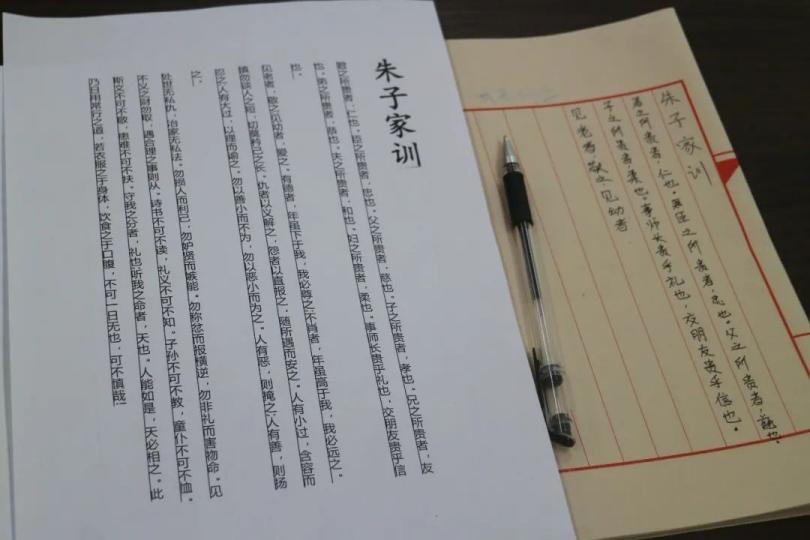 朱子家训
君之所贵者，仁也。臣之所贵者，忠也。父之所贵者，慈也。子之所贵者，孝也。兄之所贵者，友
也。弟之所贵者，恭也。夫之所贵者，和也。妇之所贵者，柔也。事师长贵乎礼也，交朋友贵乎信
也。
见老者，敬之；见幼者，爱之。有德者，年虽下于我，我必尊之；不肖者，年虽高于我，我必远之。
慎勿谈人之短，切莫矜己之长。仇者以义解之，怨者以直报之，随所遇而安之。人有小过，含容而
忍之；人有大过，以理而谕之。勿以善小而不为，勿以恶小而为之。人有恶，则掩之；人有善，则扬
之。
处世无私仇，治家无私法。勿损人而利己，勿妒贤而嫉能。勿称忿而报横逆，勿非礼而害物命。见
不义之财勿取，遇合理之事则从。诗书不可不读，礼义不可不知。子孙不可不教，童仆不可不恤。
斯文不可不敬，患难不可不扶。守我之分者，礼也；听我之命者，天也。人能如是，天必相之。此
乃日用常行之道，若衣服之于身体，饮食之于口腹，不可一日无也，可不慎哉！
朱子家训
之所贵者，仁也。臣之所贵者，忠也。父之所贵者，慈也。
子之所贵者，柔也。事师长贵乎礼也，交朋友贵乎信也。
见老者，敬之，见幼者